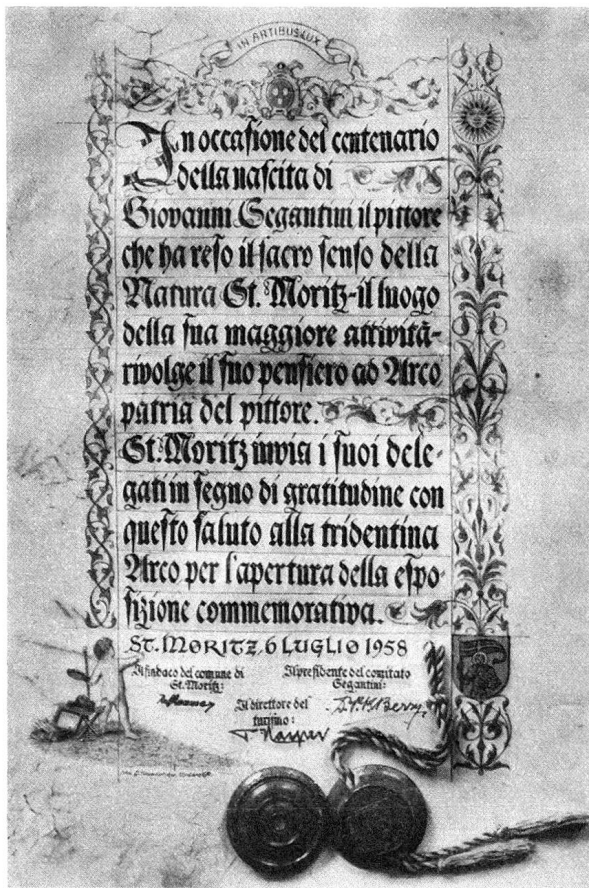 IN ARTIBUS LUX
In occasione del centenario
della nascita di
Giovanni Segantini il pittore
che ha reso il sacro senso della
Natura St. Moritz-il luogo
della sua maggiore attività-
rivolge il suo pensiero ad Arco
patria del pittore.
St. Moritz invia i suoi dele-
gati in segno di gratitudine con
questo saluto alla tridentina
Arco per l'apertura della espo-
sizione commemorativa.
ST. MORITZ, 6 LUGLIO 1958
Il sindaco del comune di
St. Moritz:
Il presidente del comitato
Segantini:
Il direttore del
turismo: